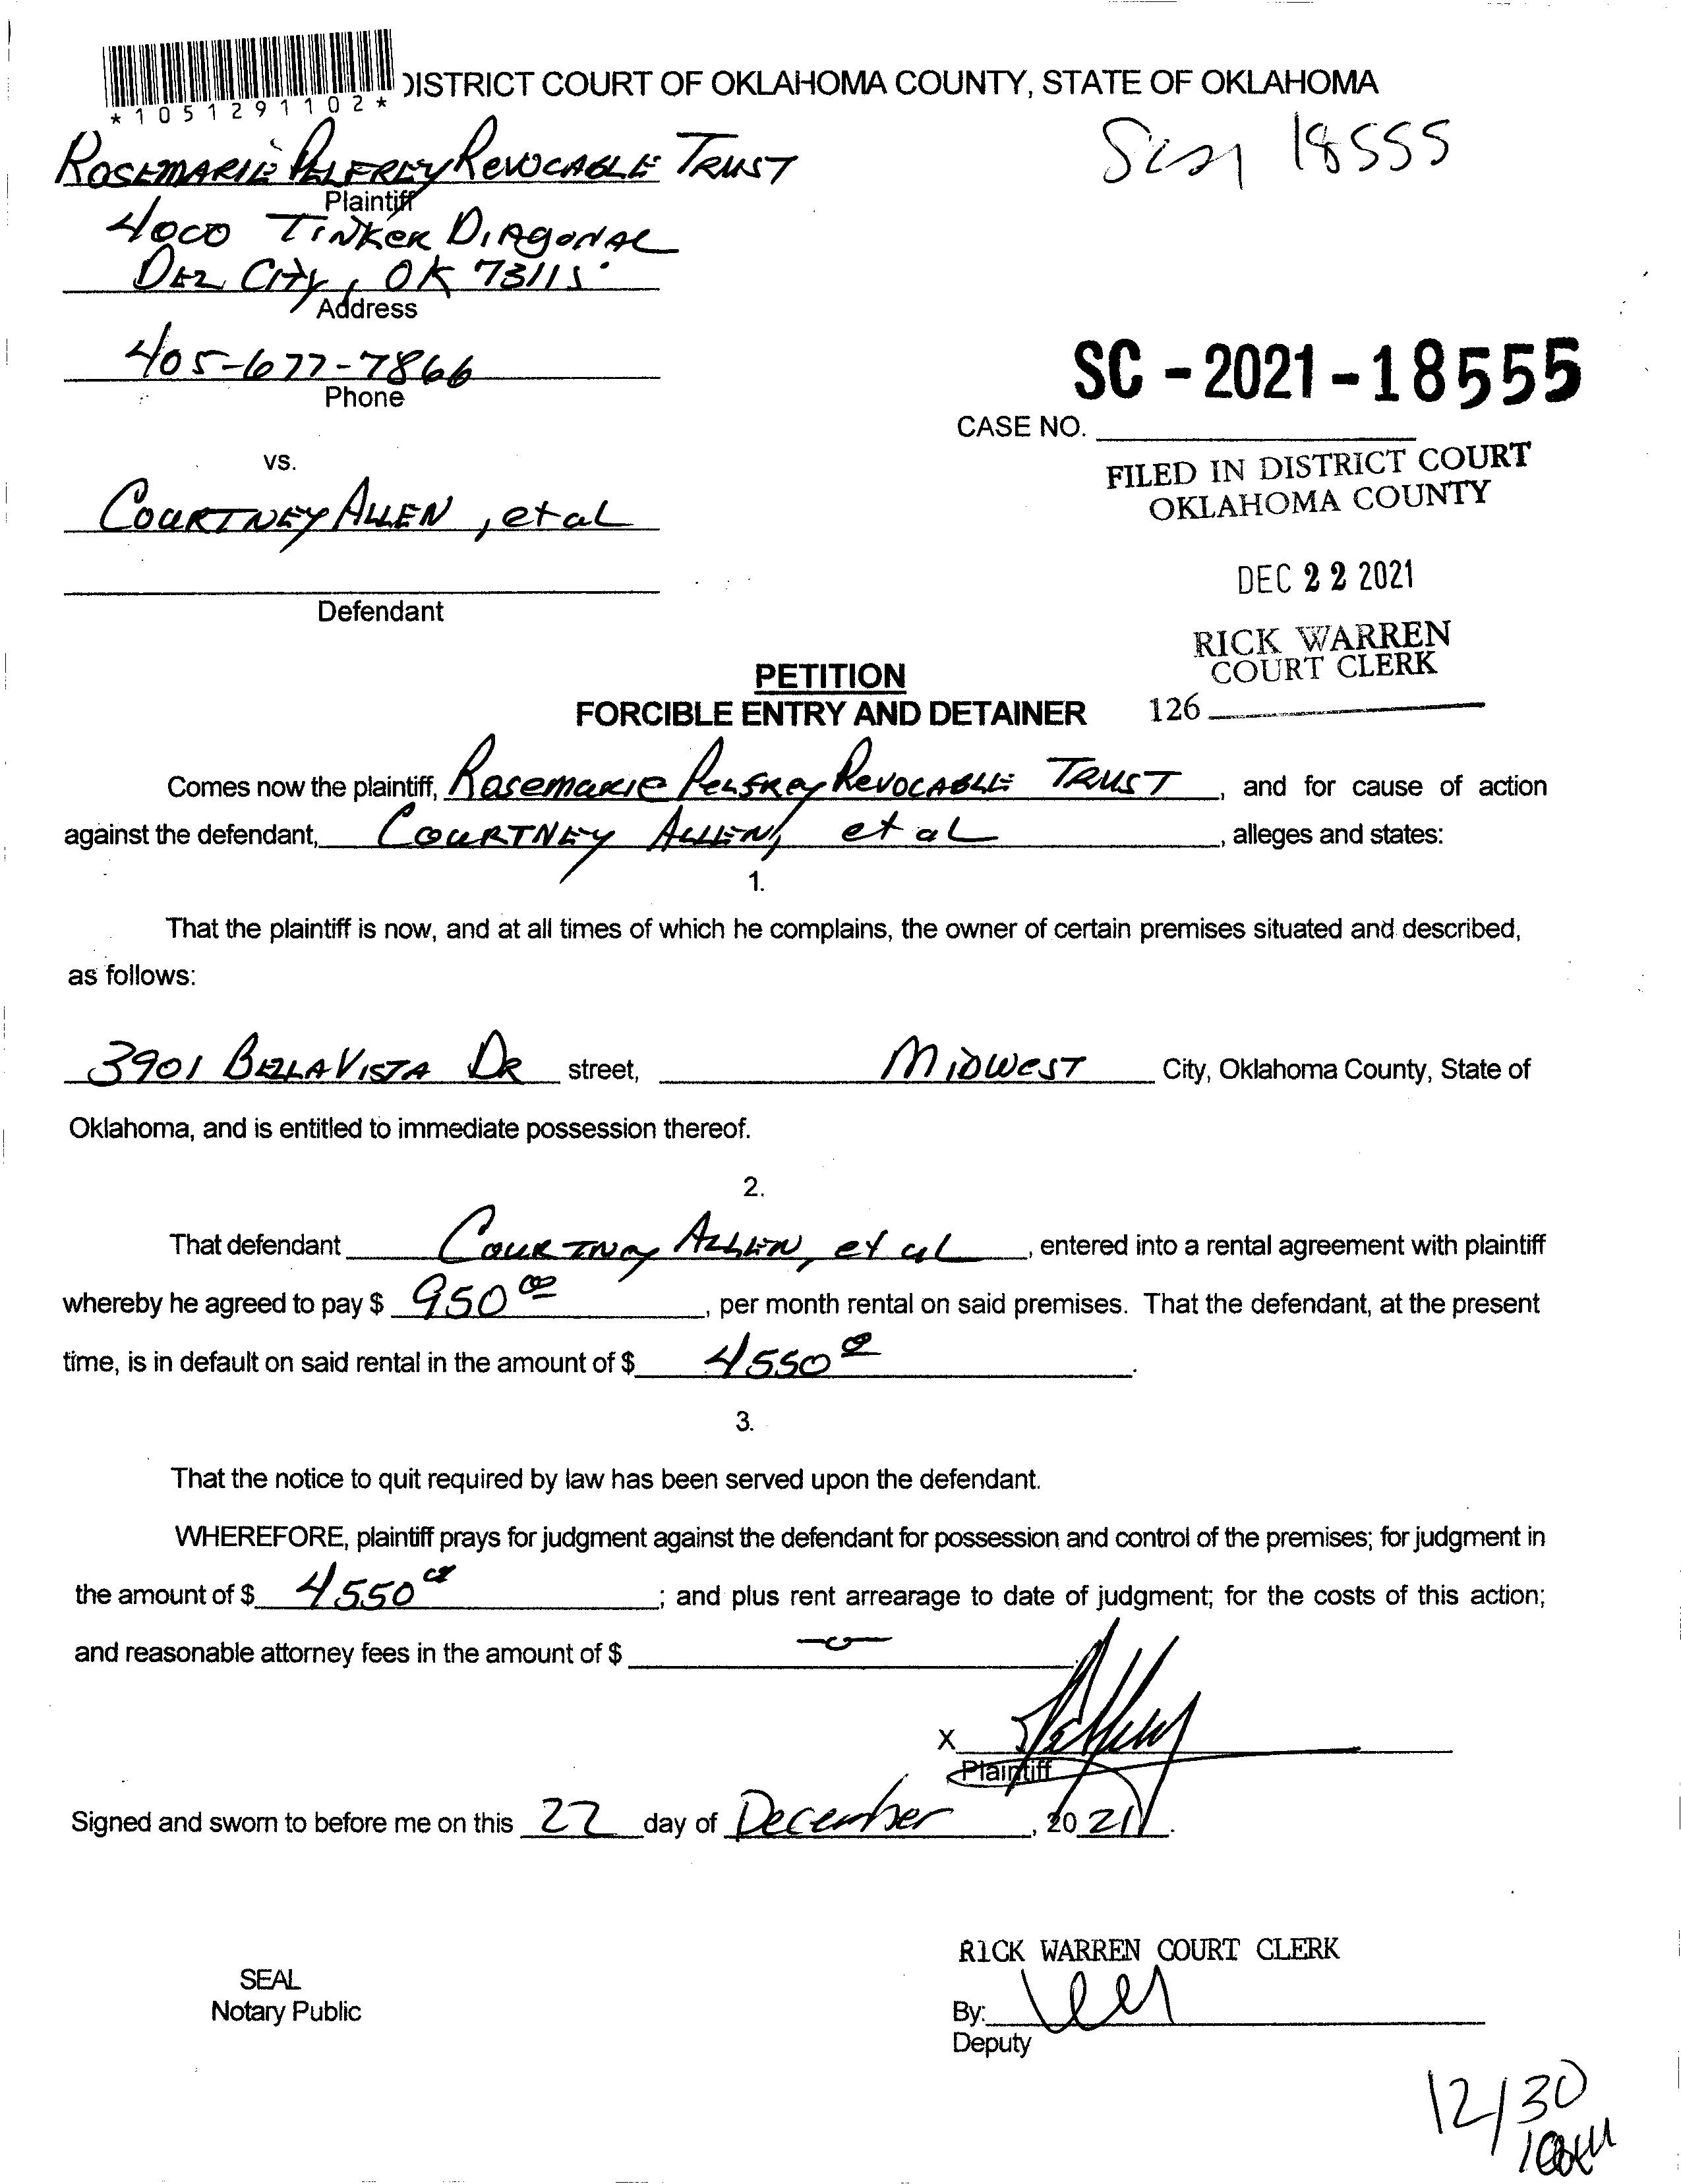 DISTRICT COURT OF OKLAHOMA COUNTY, STATE OF OKLAHOMA
*1051291102*
18555
ROSEMARIE PELFREY REVOCABLE TRUST
Plaintiff
4000 TINKER DIAGONAL
DEL CITY, OK 73115
Address
405-677-7866
Phone
SC - 2021 - 18555
CASE NO.
vs.
FILED IN DISTRICT COURT
OKLAHOMA COUNTY
COURTNEY ALLEN, et al
DEC 22 2021
Defendant
RICK WARREN
COURT CLERK
PETITION
FORCIBLE ENTRY AND DETAINER
126
Comes now the plaintiff, Rosemarie Pelfrey Revocable TRUST, and for cause of action
against the defendant, COURTNEY ALLEN, et al, alleges and states:
1.
That the plaintiff is now, and at all times of which he complains, the owner of certain premises situated and described,
as follows:
3901 BELLA VISTA DR street, MIDWEST City, Oklahoma County, State of
Oklahoma, and is entitled to immediate possession thereof.
2.
That defendant COURTNEY ALLEN, et al, entered into a rental agreement with plaintiff
whereby he agreed to pay $ 950 00, per month rental on said premises. That the defendant, at the present
time, is in default on said rental in the amount of $ 4550 00.
3.
That the notice to quit required by law has been served upon the defendant.
WHEREFORE, plaintiff prays for judgment against the defendant for possession and control of the premises; for judgment in
the amount of $ 4550 00; and plus rent arrearage to date of judgment; for the costs of this action;
and reasonable attorney fees in the amount of $ -0-
X
Plaintiff
Signed and sworn to before me on this 22 day of December, 2021.
RICK WARREN COURT CLERK
SEAL
Notary Public
By:
Deputy
12/30